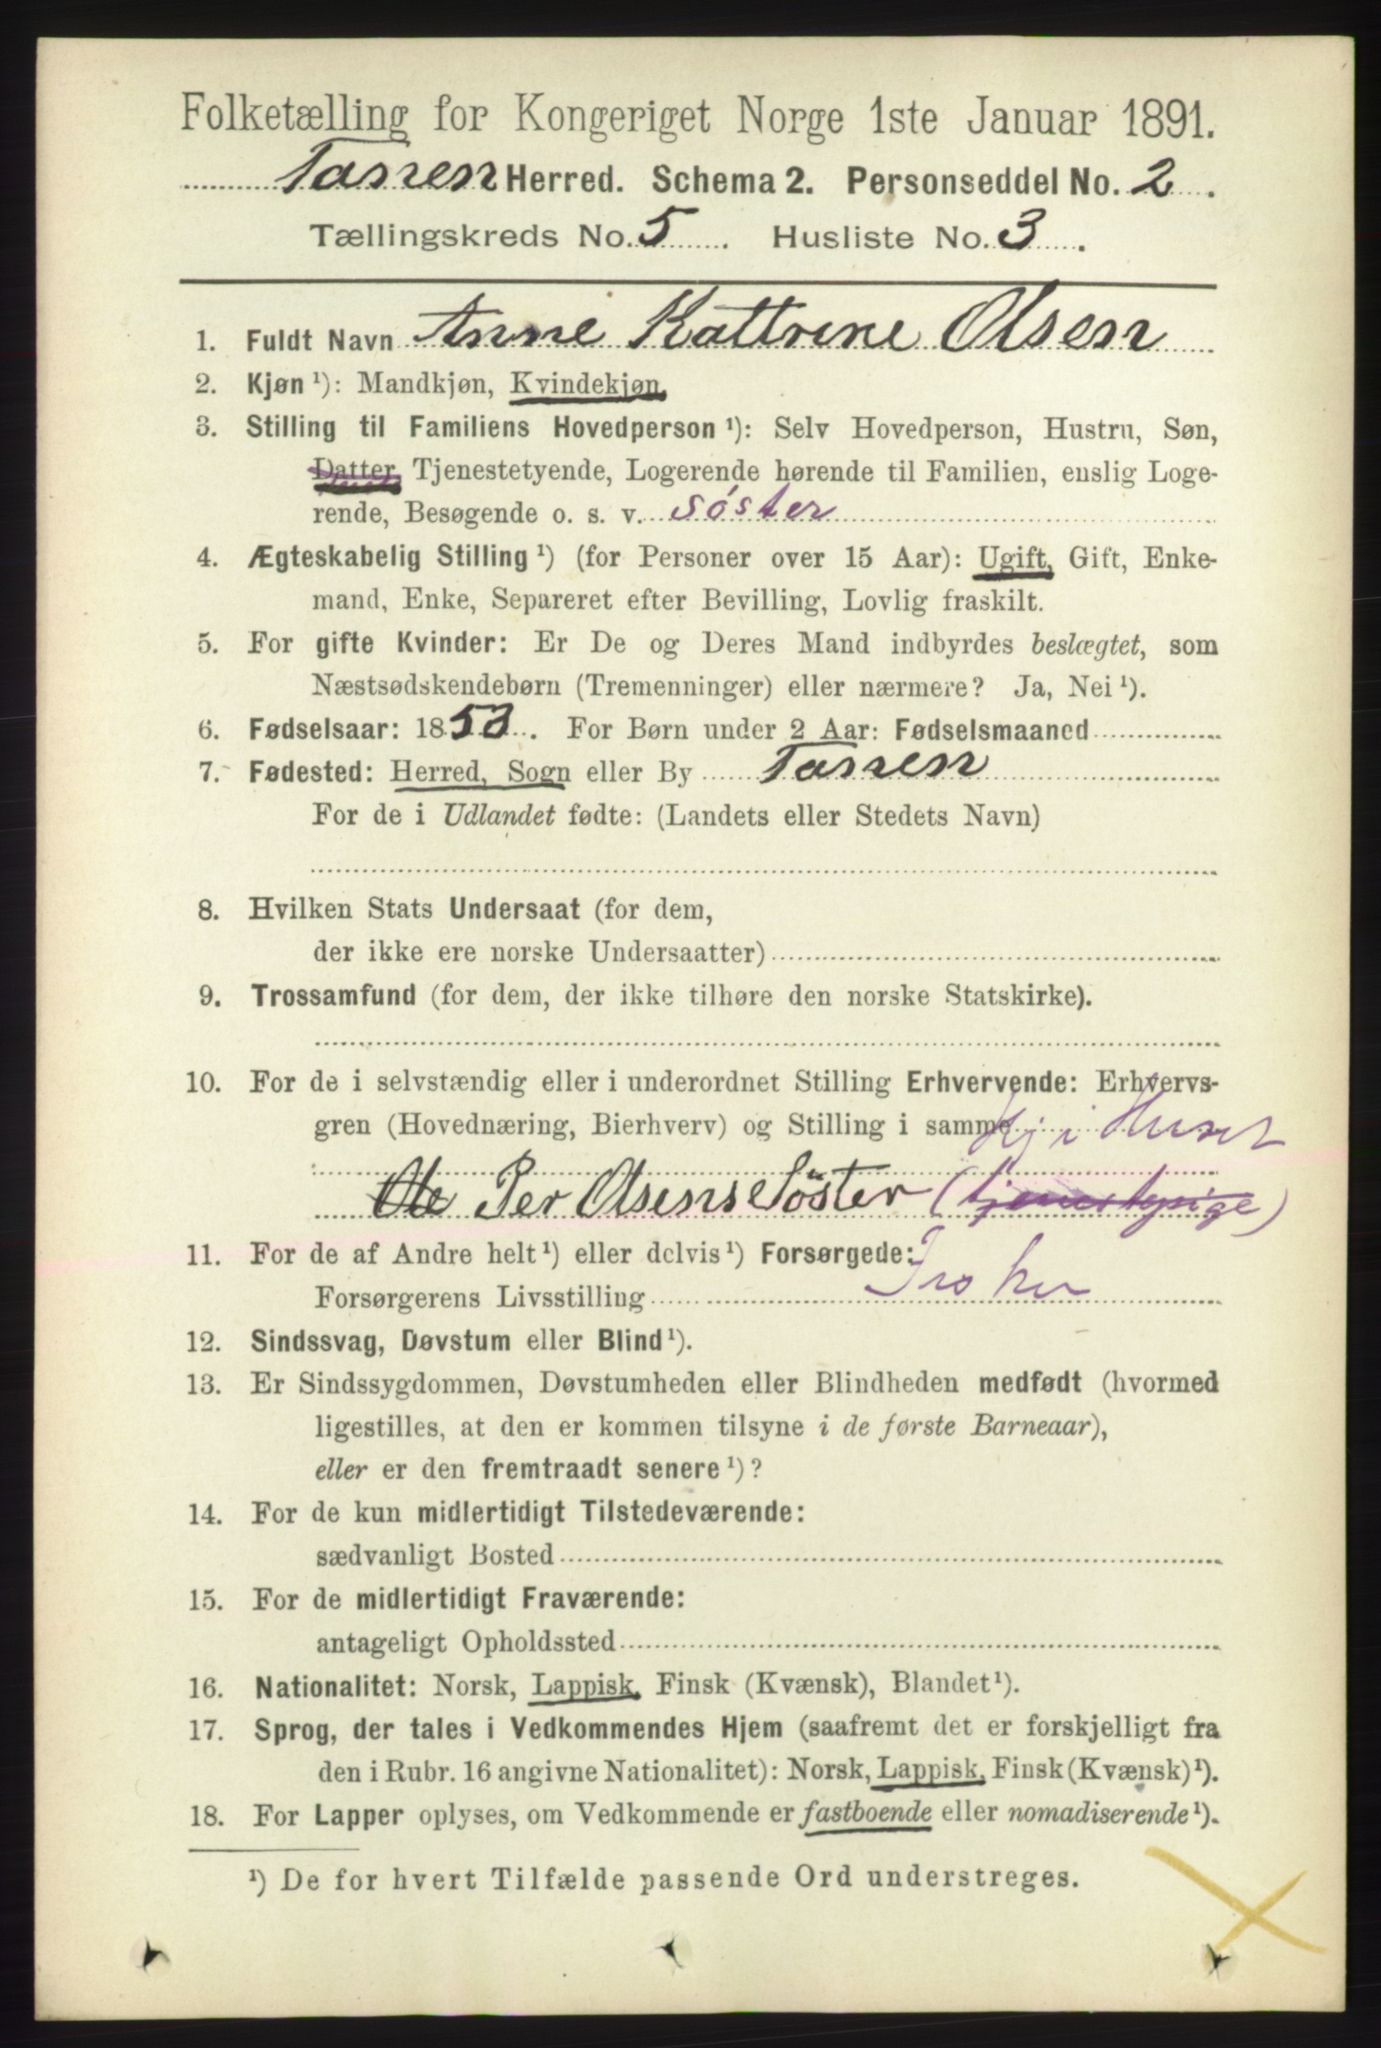 Folketælling for Kongeriget Norge 1ste Januar 1891.
Tannen Herred. Schema 2. Personseddel No. 2.
Tællingskreds No. 5. Husliste No. 3.
1. Fuldt Navn Anne Kattrine Olsen
2. Kjøn ¹): Mandkjøn, Kvindekjøn.
3. Stilling til Familiens Hovedperson ¹): Selv Hovedperson, Hustru, Søn,
Datter, Tjenestetyende, Logerende hørende til Familien, enslig Loge-
rende, Besøgende o. s. v. søster
4. Ægteskabelig Stilling ¹) (for Personer over 15 Aar): Ugift, Gift, Enke-
mand, Enke, Separeret efter Bevilling, Lovlig fraskilt.
5. For gifte Kvinder: Er De og Deres Mand indbyrdes beslægtet, som
Næstsødskendebørn (Tremenninger) eller nærmere? Ja, Nei ¹).
6. Fødselsaar: 1853. For Børn under 2 Aar: Fødselsmaaned
7. Fødested: Herred, Sogn eller By Tannen
For de i Udlandet fødte: (Landets eller Stedets Navn)
8. Hvilken Stats Undersaat (for dem,
der ikke ere norske Undersaatter)
9. Trossamfund (for dem, der ikke tilhøre den norske Statskirke).
10. For de i selvstændig eller i underordnet Stilling Erhvervende: Erhvervs-
gren (Hovednæring, Bierhverv) og Stilling i samme Hj i Huset
Ole Per Olsens Søster (tjenestepige)
11. For de af Andre helt ¹) eller delvis ¹) Forsørgede:
Forsørgerens Livsstilling
12. Sindssvag, Døvstum eller Blind ¹).
13. Er Sindssygdommen, Døvstumheden eller Blindheden medfødt (hvormed
ligestilles, at den er kommen tilsyne i de første Barneaar),
eller er den fremtraadt senere ¹)?
14. For de kun midlertidigt Tilstedeværende:
sædvanligt Bosted
15. For de midlertidigt Fraværende:
antageligt Opholdssted
16. Nationalitet: Norsk, Lappisk, Finsk (Kvænsk), Blandet ¹).
17. Sprog, der tales i Vedkommendes Hjem (saafremt det er forskjelligt fra
den i Rubr. 16 angivne Nationalitet): Norsk, Lappisk, Finsk (Kvænsk) ¹).
18. For Lapper oplyses, om Vedkommende er fastboende eller nomadiserende ¹).
¹) De for hvert Tilfælde passende Ord understreges.